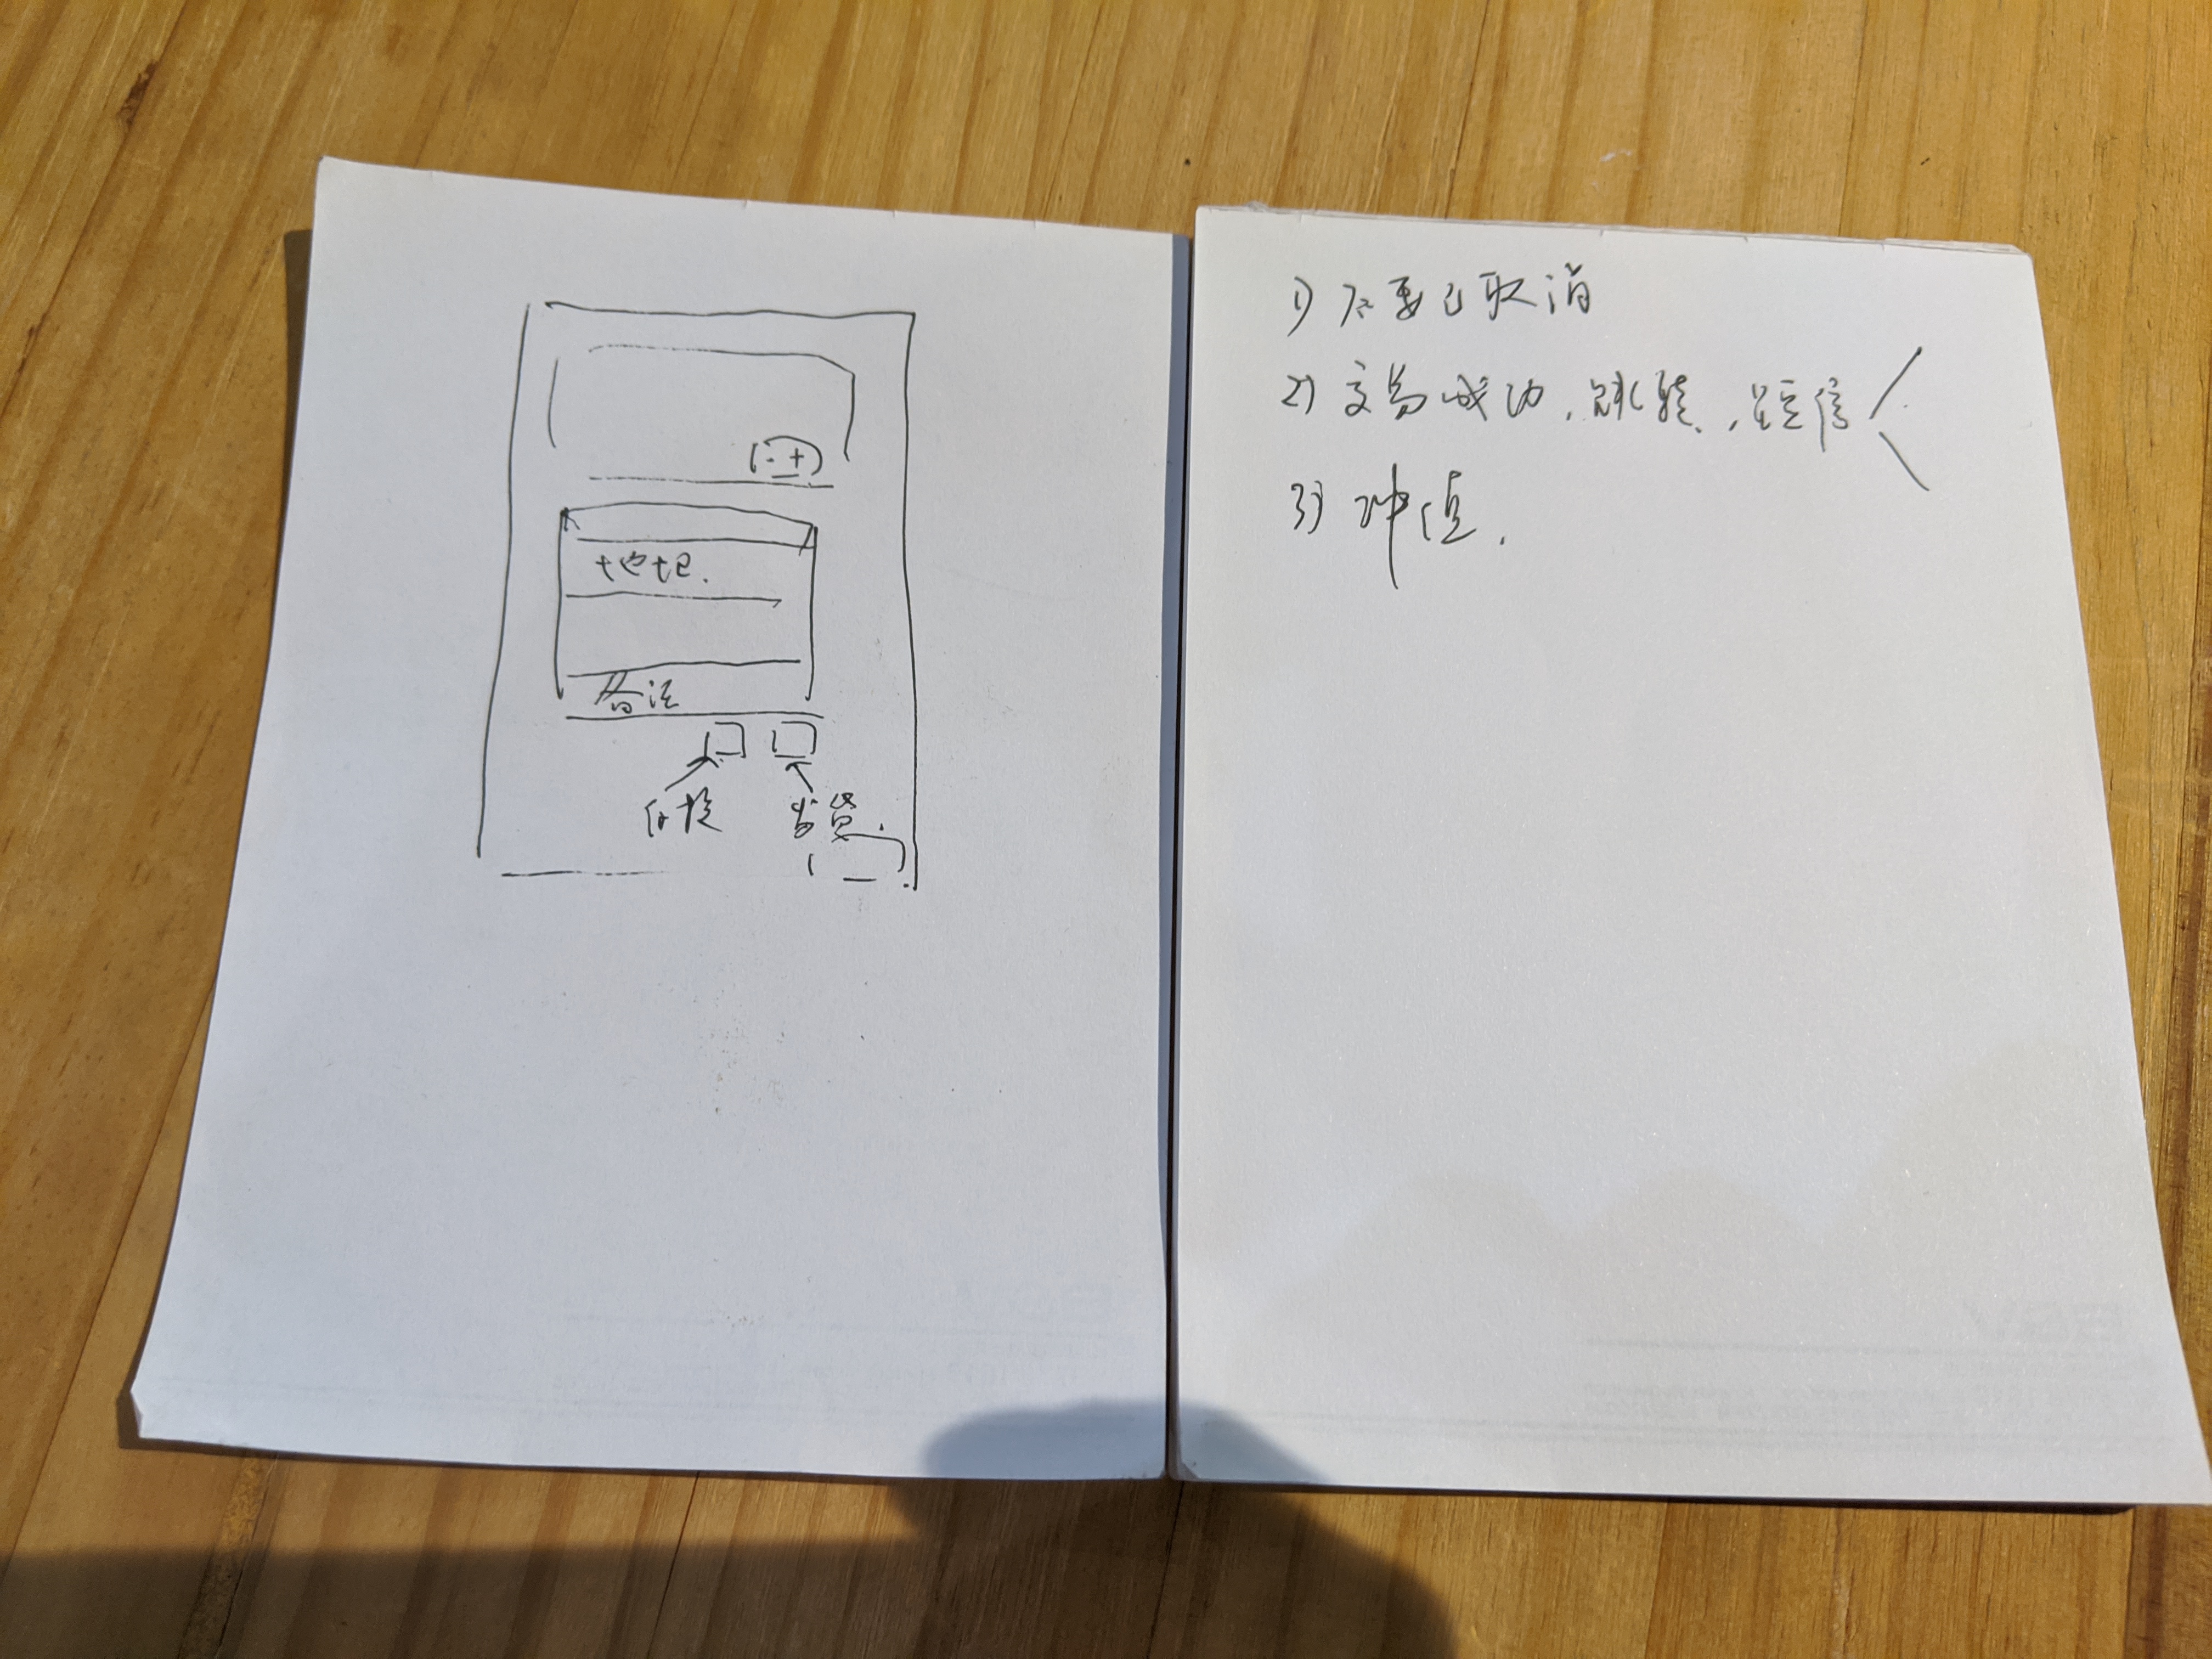 - +
地址.
备注
发货.
1) 不要已取消
2) 交易成功, 跳转, 短信
3) 冲值.